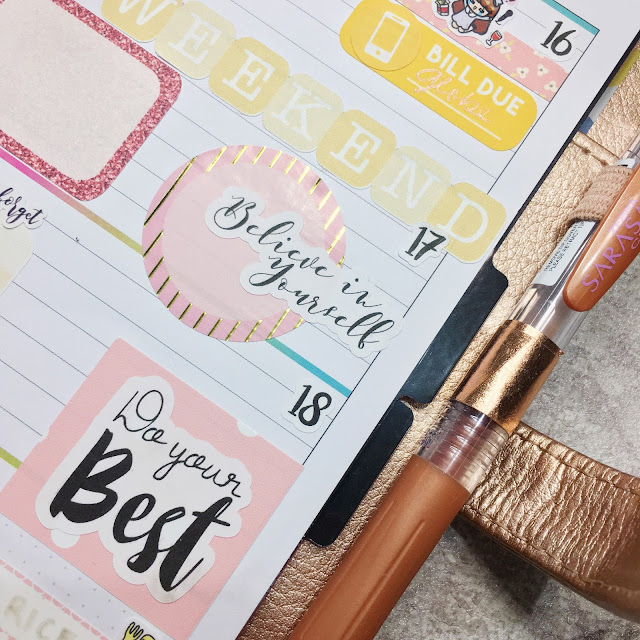 16
BILL DUE
Globe
WEEKEND
forget
17
Believe in
Yourself
18
Do your
Best
RICE
SARAS